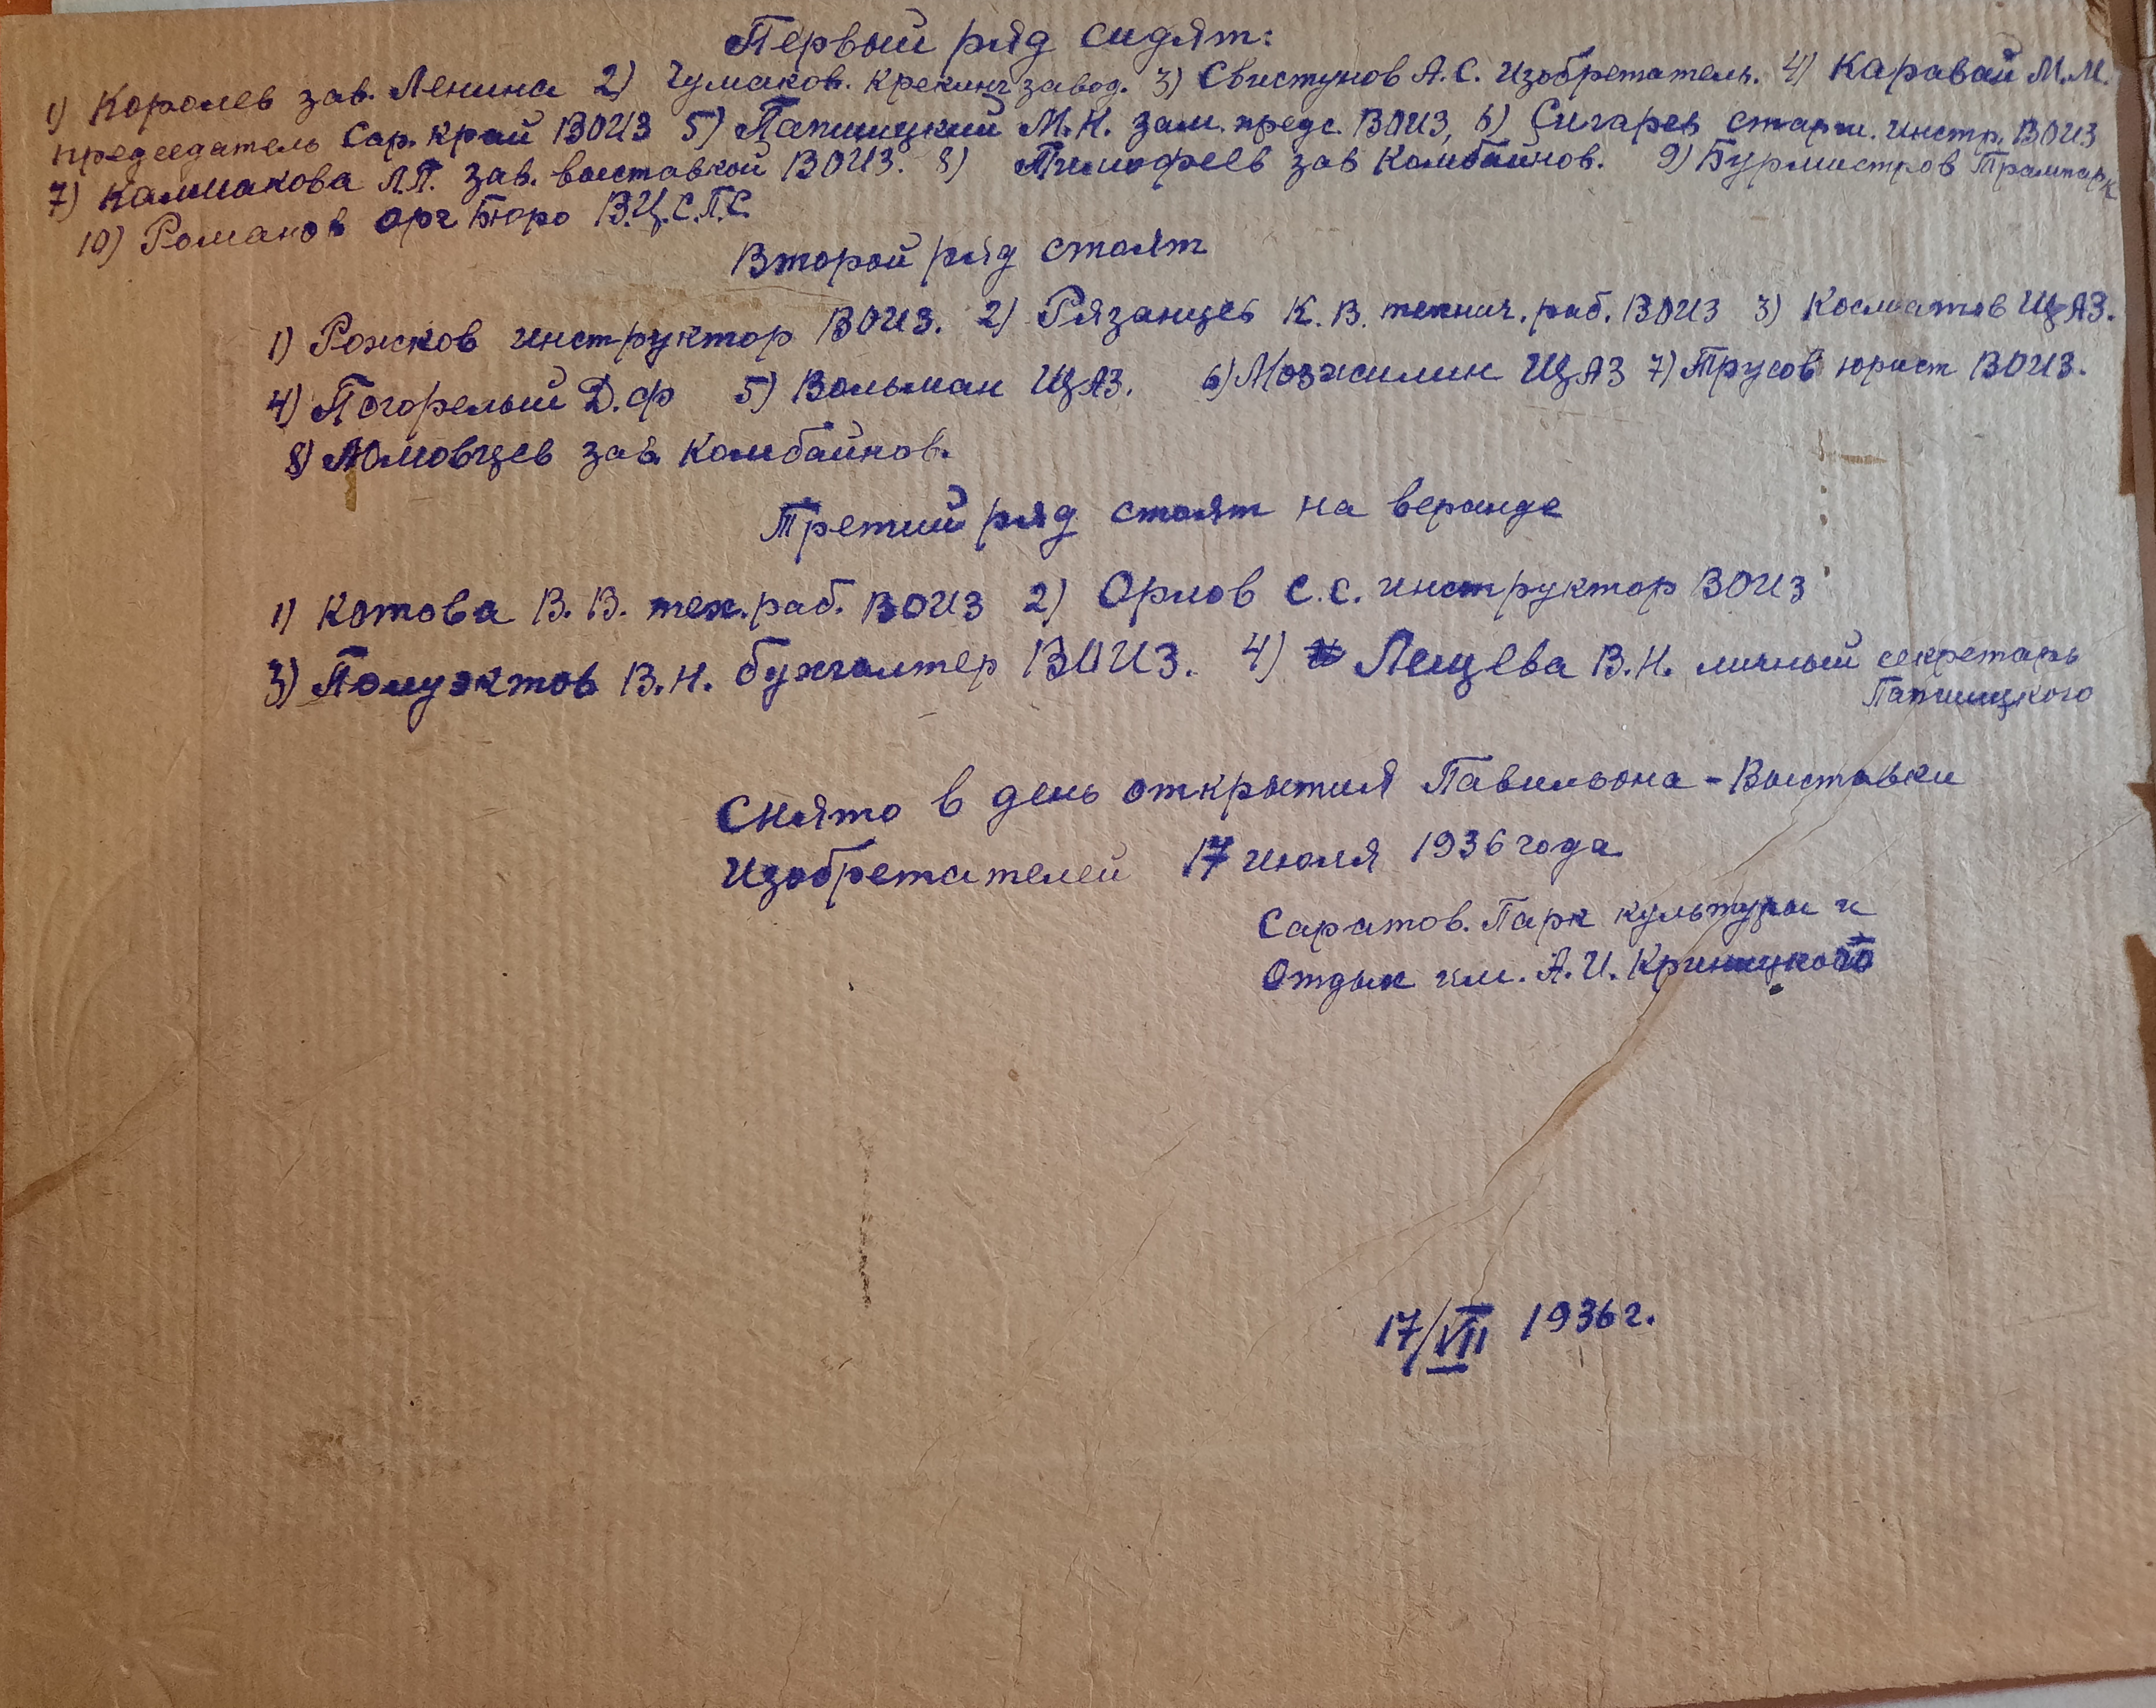 Первый ряд сидят:
1) Королев зав. Ленина 2) Чумаков. Крекинг завод. 3) Свистунов А.С. Изобретатель. 4) Каравай М.М.
председатель Сар. край ВОИЗ 5) Папшицкий М.Н. зам. предс. ВОИЗ, 6) Сигарев старш. инстр. ВОИЗ
7) Калмакова Л.П. зав. выставкой ВОИЗ. 8) Тимофеев зав Комбайнов. 9) Бурмистров Трампарк
10) Романов Орг Бюро В.Ц.С.П.С.
Второй ряд стоят
1) Рожков инструктор ВОИЗ. 2) Рязанцев К.В. технич. раб. ВОИЗ 3) Косматов ЩАЗ.
4) Погорелый Д.Ф 5) Вольман ЩАЗ. 6) Мозжилин ЩАЗ 7) Трусов юрист ВОИЗ.
8) Юмовцев зав. Комбайнов.
Третий ряд стоят на веранде
1) Котова В.В. тех. раб. ВОИЗ 2) Орлов С.С. инструктор ВОИЗ
3) Полуэктов В.Н. бухгалтер ВОИЗ. 4) Лещева В.Н. личный секретарь
Папшицкого
Снято в день открытия Павильона - Выставки
Изобретателей 17 июля 1936 года
Саратов. Парк культуры и
Отдых им. А.И. Криницкого
17/VII 1936 г.